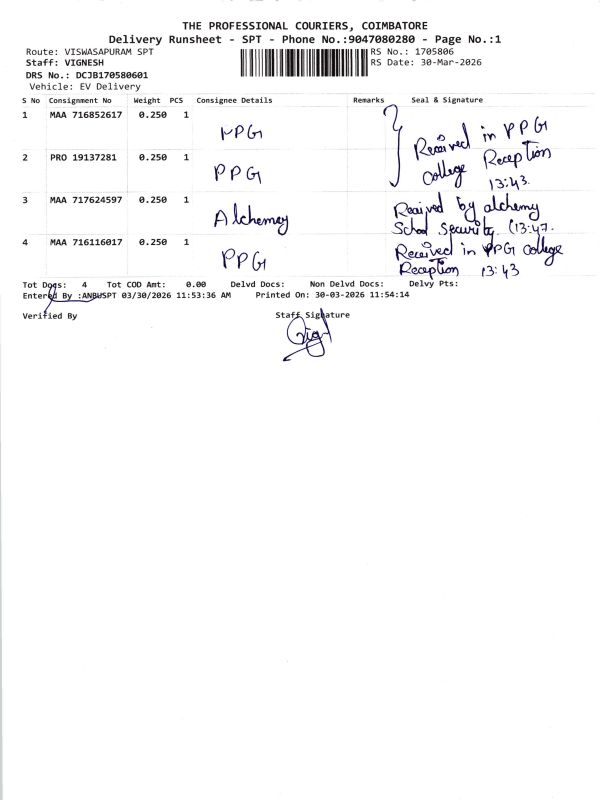 THE PROFESSIONAL COURIERS, COIMBATORE
Delivery Runsheet - SPT - Phone No.:9047080280 - Page No.:1
Route: VISWASAPURAM SPT
RS No.: 1705806
Staff: VIGNESH
RS Date: 30-Mar-2026
DRS No.: DCJB170580601
Vehicle: EV Delivery
S No Consignment No Weight PCS Consignee Details Remarks Seal & Signature
1 MAA 716852617 0.250 1 PPG
2 PRO 19137281 0.250 1 PPG
Received in PPG
College Reception
13:43.
3 MAA 717624597 0.250 1 Alchemey
Recived by alchemy
School Security. (13:47.
4 MAA 716116017 0.250 1 PPG
Received in PPG College
Reception 13:43
Tot Docs: 4 Tot COD Amt: 0.00 Delvd Docs: Non Delvd Docs: Delvy Pts:
Entered By :ANBUSPT 03/30/2026 11:53:36 AM Printed On: 30-03-2026 11:54:14
Verified By Staff Signature